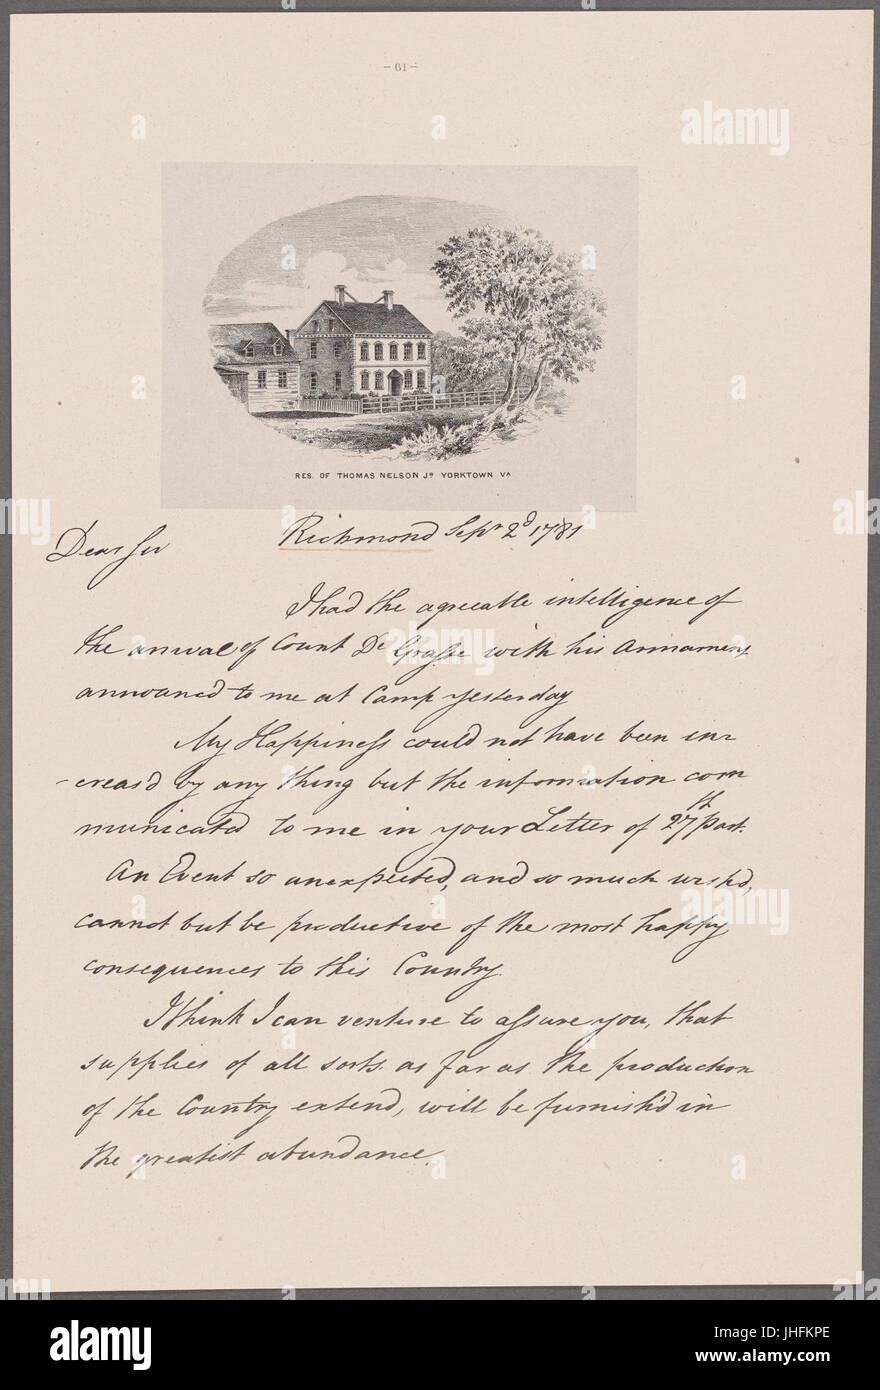 - 61 -
RES. OF THOMAS NELSON Jr YORKTOWN VA
Richmond Sepr 2d 1781
Dear Sir
I had the agreeable intelligence of
the arrival of Count De Grasse with his Armament
announc'd to me at Camp yesterday
My Happiness could not have been in-
-creas'd by any thing but the information com
municated to me in your Letter of 27th past.
An Event so unexpected, and so much wish'd,
cannot but be productive of the most happy
consequences to this Country.
I think I can venture to assure you, that
supplies of all sorts as far as the production
of the Country extend, will be furnish'd in
the greatest abundance.
alamy
alamy stock photo
alamy
Image ID: JHFKPE
www.alamy.com